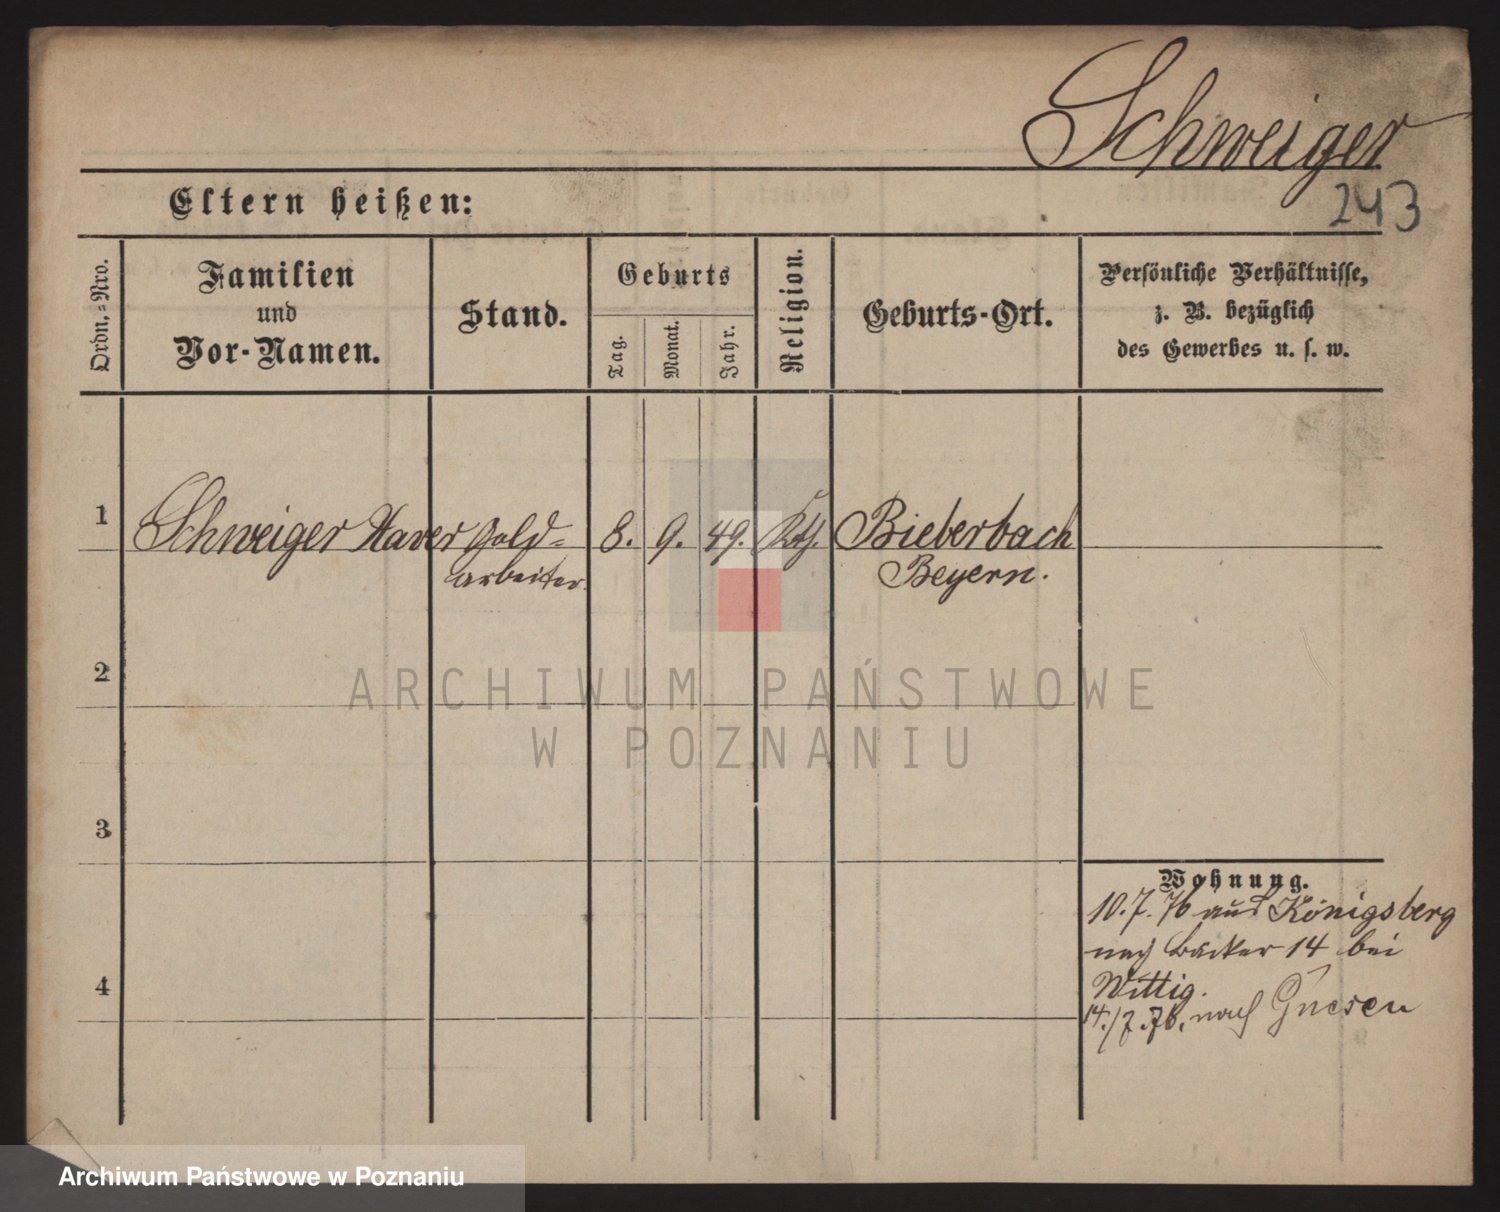 Schweiger
243
Eltern heißen:
Ordn.-Nro.
Familien
und
Vor-Namen.
Stand.
Geburts
Tag.
Monat.
Jahr.
Religion.
Geburts-Ort.
Persönliche Verhältnisse,
z. B. bezüglich
des Gewerbes u. s. w.
1
Schweiger Xaver Gold-
arbeiter.
8. 9. 49. Kth. Bieberbach
Beyern.
2
ARCHIWUM PAŃSTWOWE
W POZNANIU
3
Wohnung.
10.7.76 aus Königsberg
nach Bäcker 14 bei
Wittig.
4
14./7.76. nach Gnesen
Archiwum Państwowe w Poznaniu